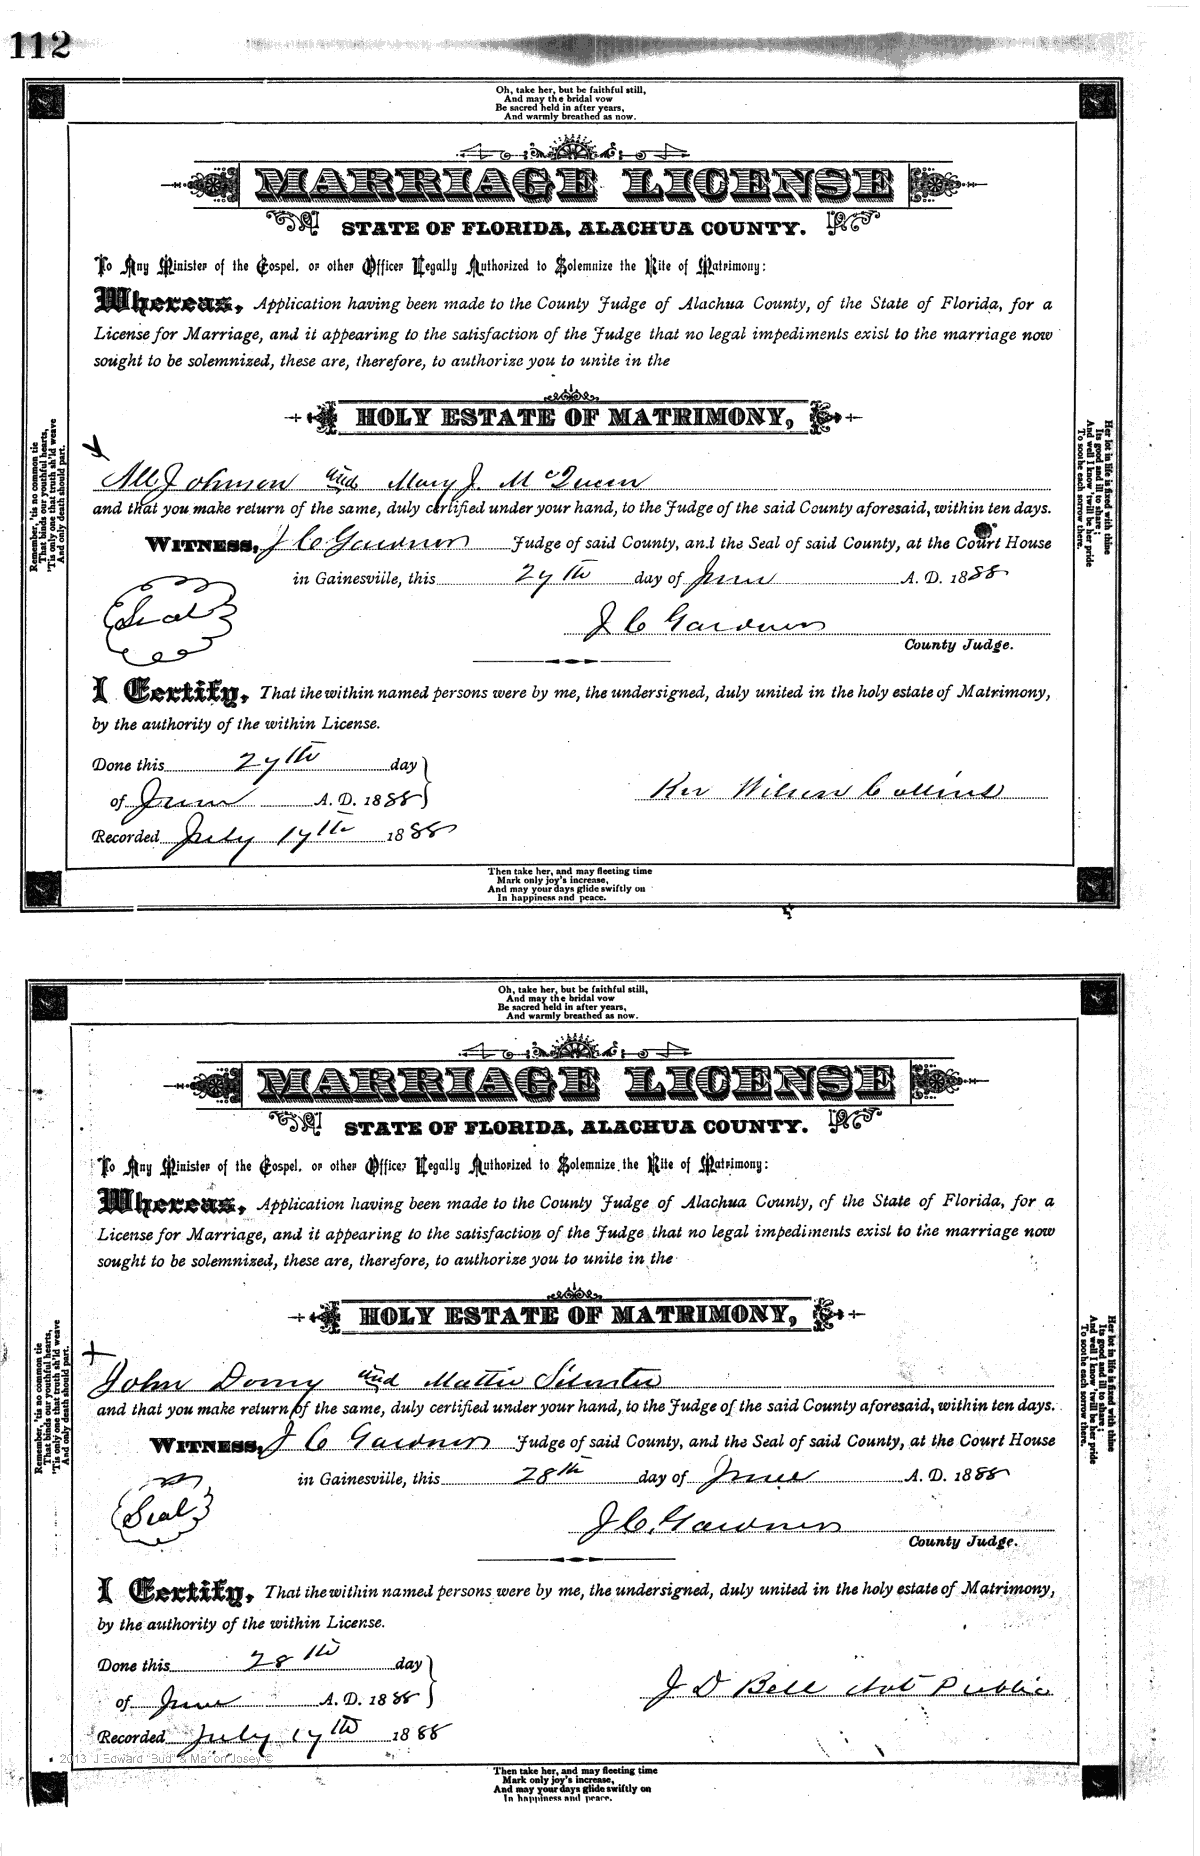 112
Oh, take her, but be faithful still,
And may the bridal vow
Be sacred held in after years,
And warmly breathed as now.
MARRIAGE LICENSE
STATE OF FLORIDA, ALACHUA COUNTY.
To Any Minister of the Gospel, or other Officer Legally Authorized to Solemnize the Rite of Matrimony:
Whereas, Application having been made to the County Judge of Alachua County, of the State of Florida, for a
License for Marriage, and it appearing to the satisfaction of the Judge that no legal impediments exist to the marriage now
sought to be solemnized, these are, therefore, to authorize you to unite in the
HOLY ESTATE OF MATRIMONY,
Johnson and Mary J. McQueen
and that you make return of the same, duly certified under your hand, to the Judge of the said County aforesaid, within ten days.
WITNESS, J C Gardner Judge of said County, and the Seal of said County, at the Court House
in Gainesville, this 27th day of June A. D. 1888
Seal
J C Gardner
County Judge.
I Certify, That the within named persons were by me, the undersigned, duly united in the holy estate of Matrimony,
by the authority of the within License.
Done this 27th day
of June A. D. 1888
Rev Wilson Collins
Recorded July 17th 1888
Then take her, and may fleeting time
Mark only joy's increase,
And may your days glide swiftly on
In happiness and peace.
Remember, 'tis no common tie
That binds our youthful hearts,
'Tis only one that truth sh'ld weave
And only death should part.
Her lot in life is fixed with thine
Its good and ill to share;
And well I know 'twill be her pride
To soothe each sorrow there.
Oh, take her, but be faithful still,
And may the bridal vow
Be sacred held in after years,
And warmly breathed as now.
MARRIAGE LICENSE
STATE OF FLORIDA, ALACHUA COUNTY.
To Any Minister of the Gospel, or other Officer Legally Authorized to Solemnize the Rite of Matrimony:
Whereas, Application having been made to the County Judge of Alachua County, of the State of Florida, for a
License for Marriage, and it appearing to the satisfaction of the Judge that no legal impediments exist to the marriage now
sought to be solemnized, these are, therefore, to authorize you to unite in the
HOLY ESTATE OF MATRIMONY,
John Dorsy and Mattie
and that you make return of the same, duly certified under your hand, to the Judge of the said County aforesaid, within ten days.
WITNESS, J C Gardner Judge of said County, and the Seal of said County, at the Court House
in Gainesville, this 28th day of June A. D. 1888
Seal
J C. Gardner
County Judge.
I Certify, That the within named persons were by me, the undersigned, duly united in the holy estate of Matrimony,
by the authority of the within License.
Done this 28th day
of June A. D. 1888
J D Bell Not Public
Recorded July 17th 1888
2013 J Edward "Bud" & Marion Josey ©
Then take her, and may fleeting time
Mark only joy's increase,
And may your days glide swiftly on
In happiness and peace.
Remember, 'tis no common tie
That binds our youthful hearts,
'Tis only one that truth sh'ld weave
And only death should part.
Her lot in life is fixed with thine
Its good and ill to share;
And well I know 'twill be her pride
To soothe each sorrow there.